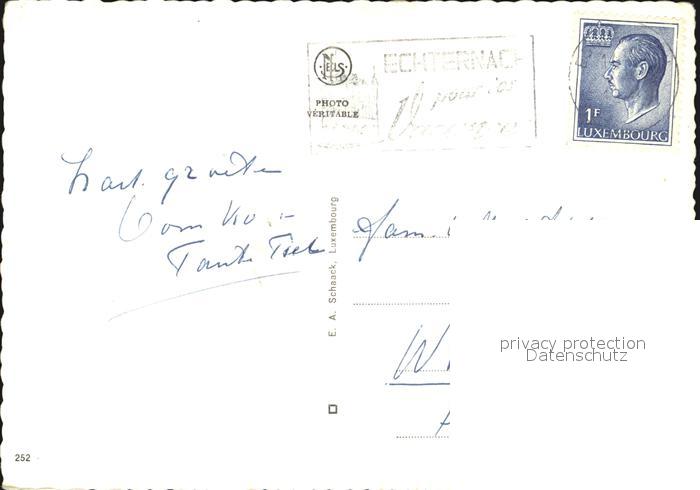 NELS
PHOTO
VÉRITABLE
ECHTERNACH
pour vos
1F
LUXEMBOURG
Hart. groeten
Oom Ko. -
Tante
Fam.
E. A. Schaack, Luxembourg
W
252
privacy protection
Datenschutz